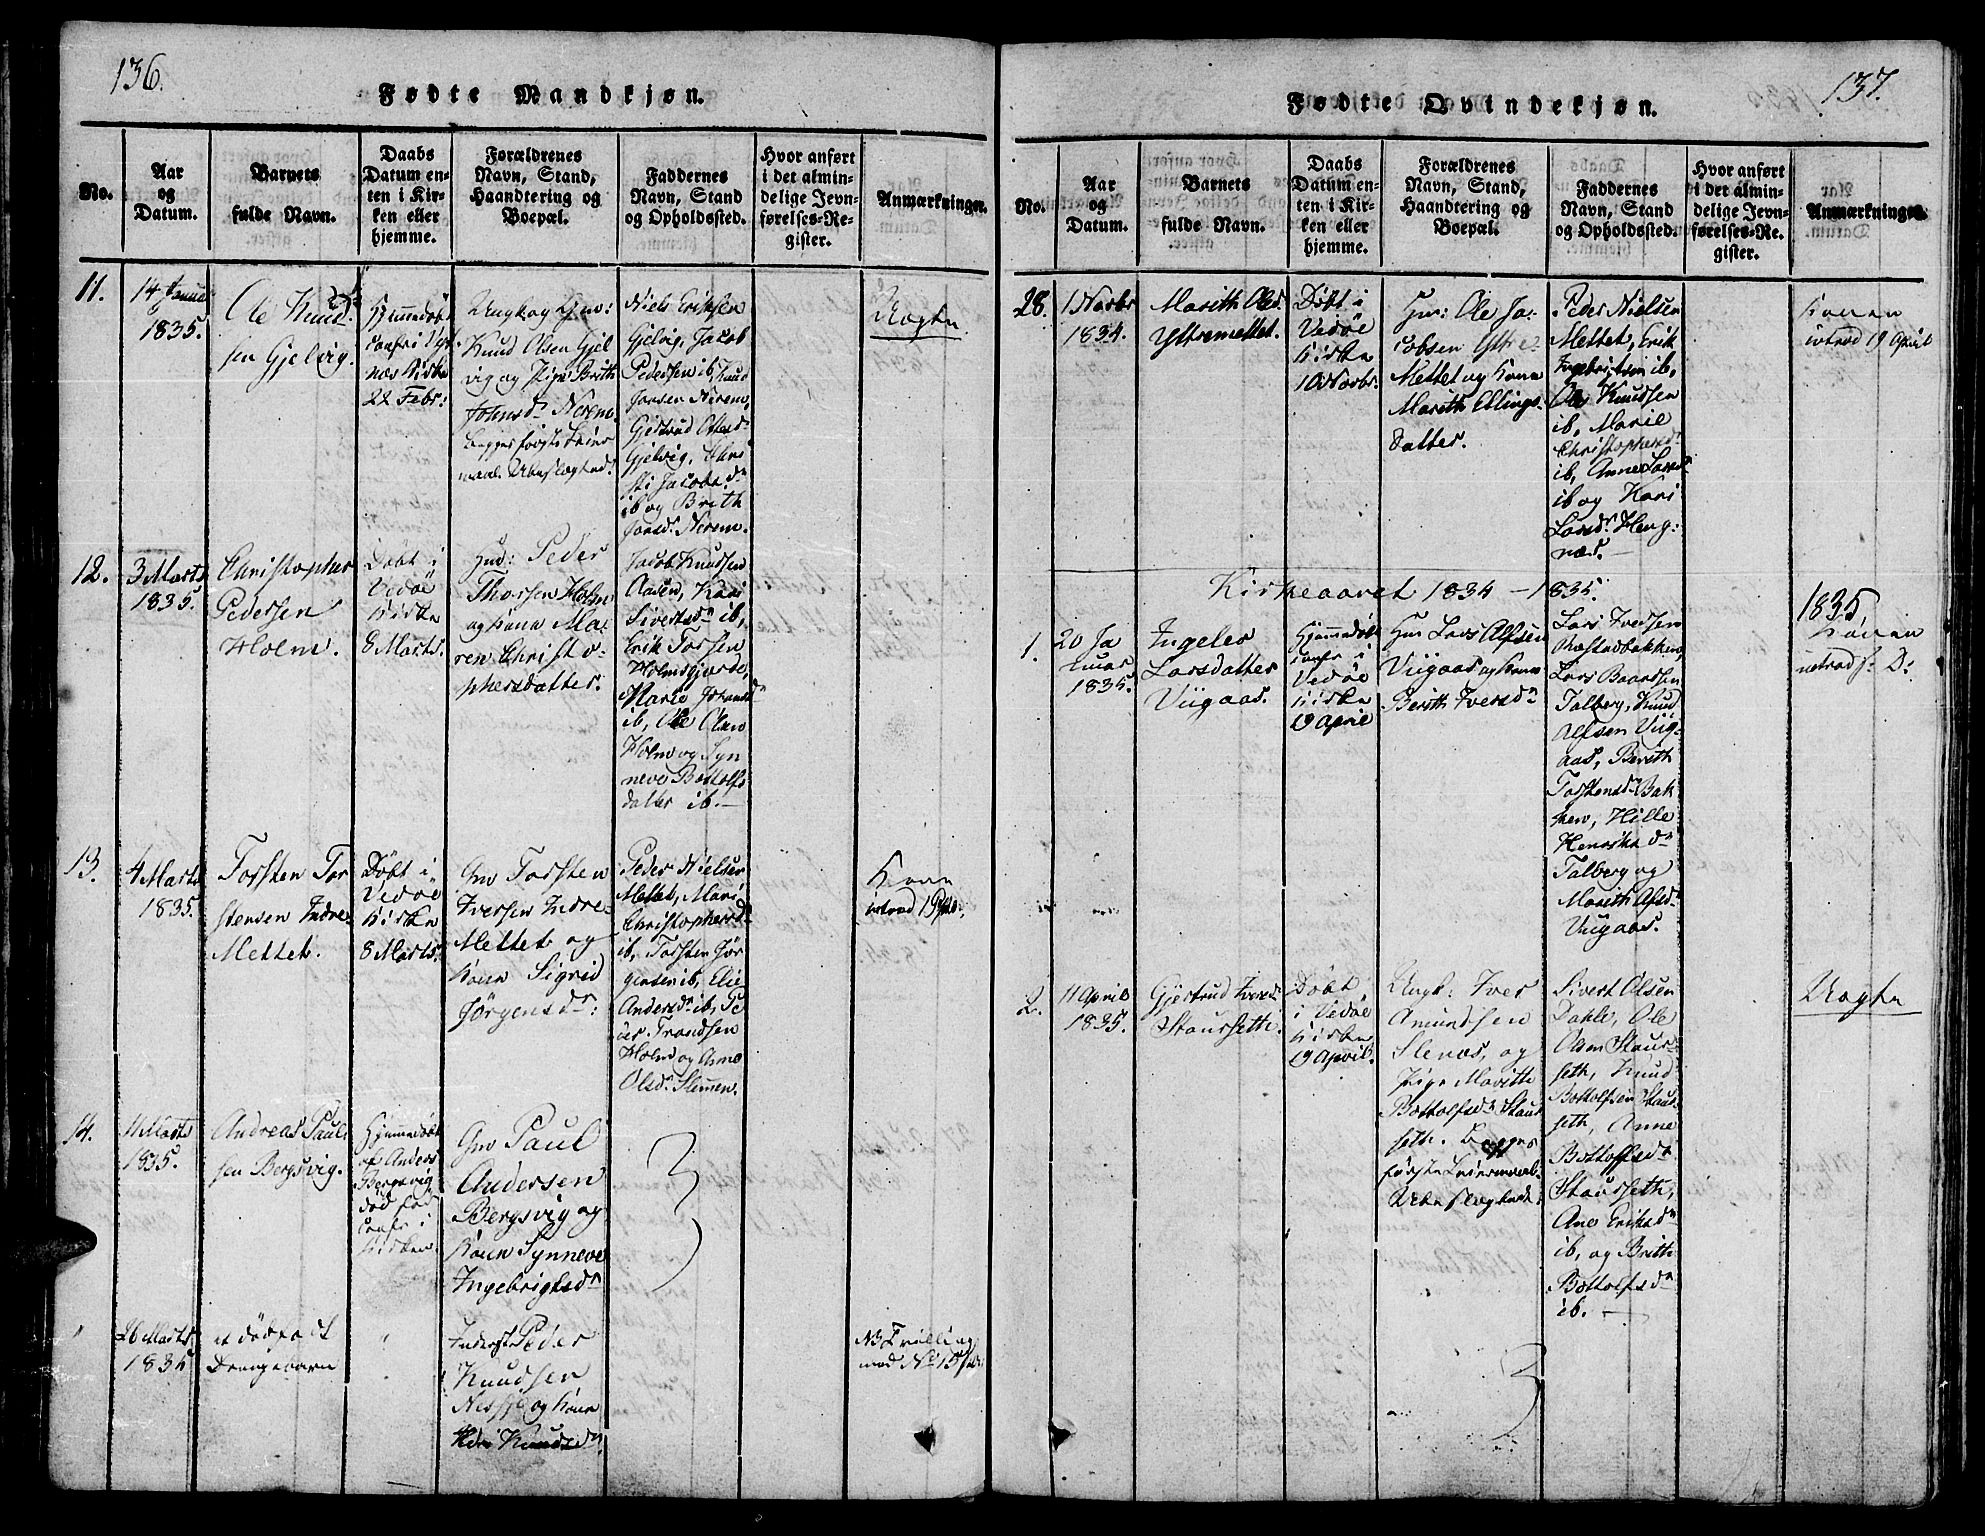 136.
Fødte Mandkjøn.
No.
Aar
og
Datum.
Barnets
fulde Navn.
Daabs
Datum en-
ten i Kir-
ken eller
hjemme.
Forældrenes
Navn, Stand,
Haandtering og
Boepæl.
Faddernes
Navn, Stand
og Opholdssted.
Hvor anført
i det almin-
delige Jevn-
førelses-Re-
gister.
Anmærkninger.
11.
14 Januar
1835.
Ole Knud-
sen Gjelvig.
Hjemmedöbt
22 Febr:
Knud Olsen Gjel
vig og Pige Brith
Johnsdr Nerem.
Niels Eriksen
Gjelvig, Jacob
Pedersen ib, Knud
Jonsen Nerem,
Gjertrud Olsdr
Gjelvig,
Jacobsdr
ib og Brith
Jonsdr Nerem.
Uægte
12.
3 Marts
1835.
Christopher
Pedersen
Holm.
Döbt i
Vedöe
Kirke
8 Marts.
Hud: Peder
Thorsen Holm
og Kone Ma-
ren Christo-
phersdatter.
Jacob Knudsen
Aasen, Kari
Sivertsdr ib,
Erik Torsen
Holmsgjerde,
Marie Johansdr
ib, Ole Olsen
Holm og Syn
neve Bottolfs
datter ib.
13.
4 Marts
1835.
Torsten Tor
stensen Indre
Mettet.
Döbt i
Vedöe
Kirke
8 Marts.
Gm Torsten
Iversen Indre-
Mettet og
Kone Sigrid
Jörgensdr:
Peder Nielsen
Mettet, Mari
Christophersdr
ib, Torsten Jör
gensen ib, Elie
Andersdr ib, Pe
der Trondsen
Holm og Anne
Olsdr Slemmen.
Konen
introd 19 Apr.
14.
11 Marts
1835.
Andreas Paul
sen Bergsvig.
Hjemmedöbt
af Anders
Bergsvig
död för
Kirken.
Gm Paul
Andersen
Bergsvig og
Kone Synneve
Ingebrigtsdr
26 Marts
1835
et dödfödt
Drengebarn
Inderst Peder
Knudsen
og Kone
Knudsdr
NB Tvilling
med No 15
137.
Fødte Qvindekjøn.
No.
Aar
og
Datum.
Barnets
fulde Navn.
Daabs
Datum en-
ten i Kir-
ken eller
hjemme.
Forældrenes
Navn, Stand,
Haandtering og
Boepæl.
Faddernes
Navn, Stand
og Opholdssted.
Hvor anført
i det almin-
delige Jevn-
førelses-Re-
gister.
Anmærkninger.
28.
1 Novbr
1834.
Marith Olsd.
Yttremettet.
Döbt i
Vedöe
Kirke
10 Novbr.
Gm: Ole Ja-
cobsen Yttre
Mettet og Kone
Marith Ellings-
datter.
Peder Nielsen
Mettet, Erik
Ingebrigtsen ib,
Ole Knudsen
ib, Marie
Christophersdr
ib, Anne Larsdr
ib og Kari
Larsdr Heng-
næs.
Konen
introd 19 April
Kirkeaaret 1834 - 1835.
1.
20 Ja
nuar
1835.
Ingeler
Larsdatter
Viigaas.
Hjemmedöbt
confr i
Vedöe
Kirke
19 April
Gm Lars Alfsen
Viigaas og Kone
Berith Iversdr
Lars Iversen
Næstebakken,
Lars Baardsen
Talberg, Knud
Alfsen Viig-
aas, Berith
Torstensdr Bak
ken, Hille
Henriksdr
Talberg og
Marith Alfsdr
Viigaas.
1835
Konen
introd s: D:
2.
11 April
1835.
Gjertrud Iversdr
Staurseth.
Döbt
i Vedöe
Kirke
19 April.
Ungk: Iver
Amundsen
Slenæs, og
Pige Marith
Bottolfsdr Staur
seth. Begges
förste Leiermaal.
Ubeslægtede.
Sivert Olsen
Dahle, Ole
Olsen Staur-
seth, Knud
Bottolfsen Staur-
seth, Anne
Bottolfsdr
Staurseth,
Ane Eriksdr
ib, og Brith
Bottolfsdr
ib.
Uægte